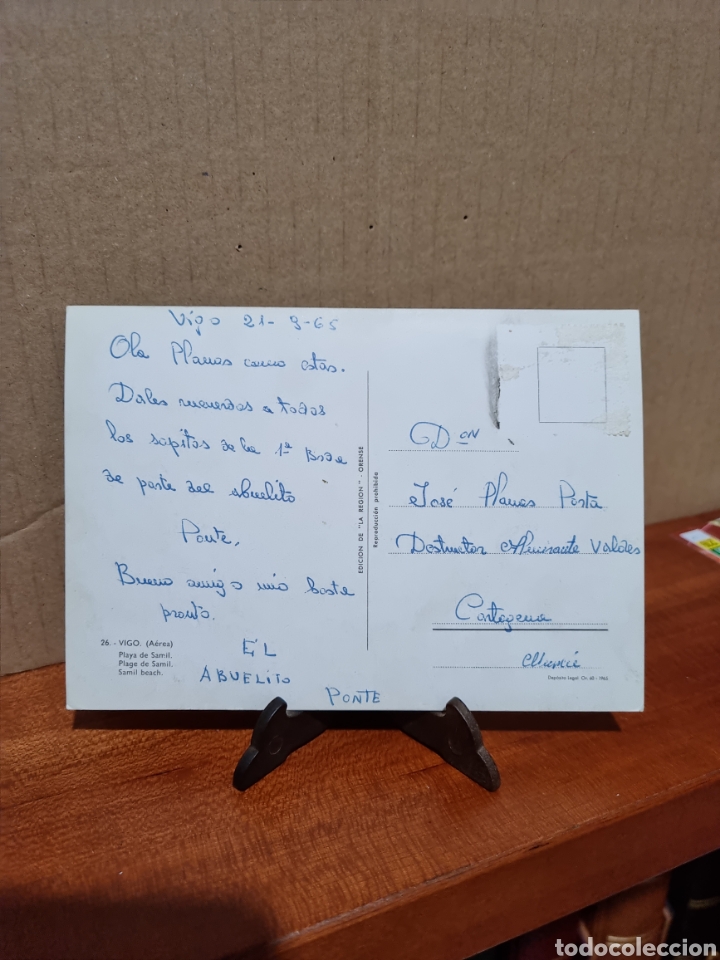 Vigo 21-9-65
Ola Planas como estas.
Dales recuerdos a todos
los sapitos de la 1ª Bda
de parte del abuelito
Ponte,
Bueno amigo mio baste
pronto.
EL
ABUELITO
PONTE
26. - VIGO. (Aérea)
Playa de Samil.
Plage de Samil.
Samil beach.
EDICION DE "LA REGION" - ORENSE
Reproducción prohibida
Don
José Planas Posta
Destructor Almirante Valdes
Cartagena
Murcia
Depósito legal Or. 60 - 1965
todocoleccion